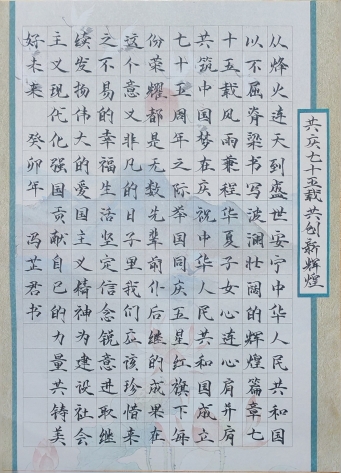 共庆七十五载 共创新辉煌
从烽火连天到盛世安宁中华人民共和国
以不屈脊梁书写波澜壮阔的辉煌篇章七
十五载风雨兼程华夏子女心连心肩并肩
共筑中国梦在庆祝中华人民共和国成立
七十五周年之际举国同庆五星红旗下每
份荣耀都是无数先辈前仆后继的成果在
这个意义非凡的日子里我们应该珍惜来
之不易的幸福生活坚定信念锐意进取继
续发扬伟大的爱国主义精神为建设社会
主义现代化强国贡献自己的力量共铸美
好未来 癸卯年 冯芷君书